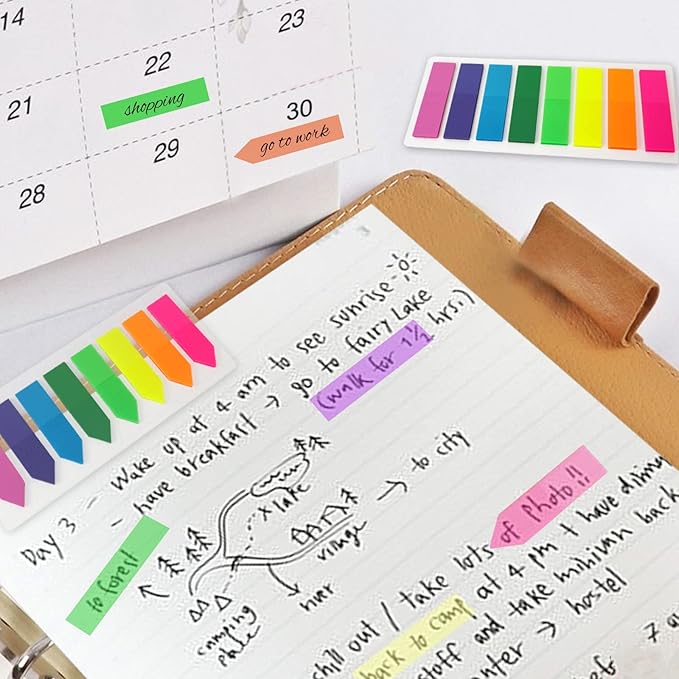 14
22
23
shopping
21
30
go to work
29
28
Day 3 - Wake up at 4 am to see sunrise
- have breakfast → go to fairy Lake
(walk for 1½ hrs.)
x lake
→ to city
village
to forest
river
camping
chill out / take lots of photo!!
back to camp at 4 pm + have
stuff and take minivan back
→ hostel
7 a